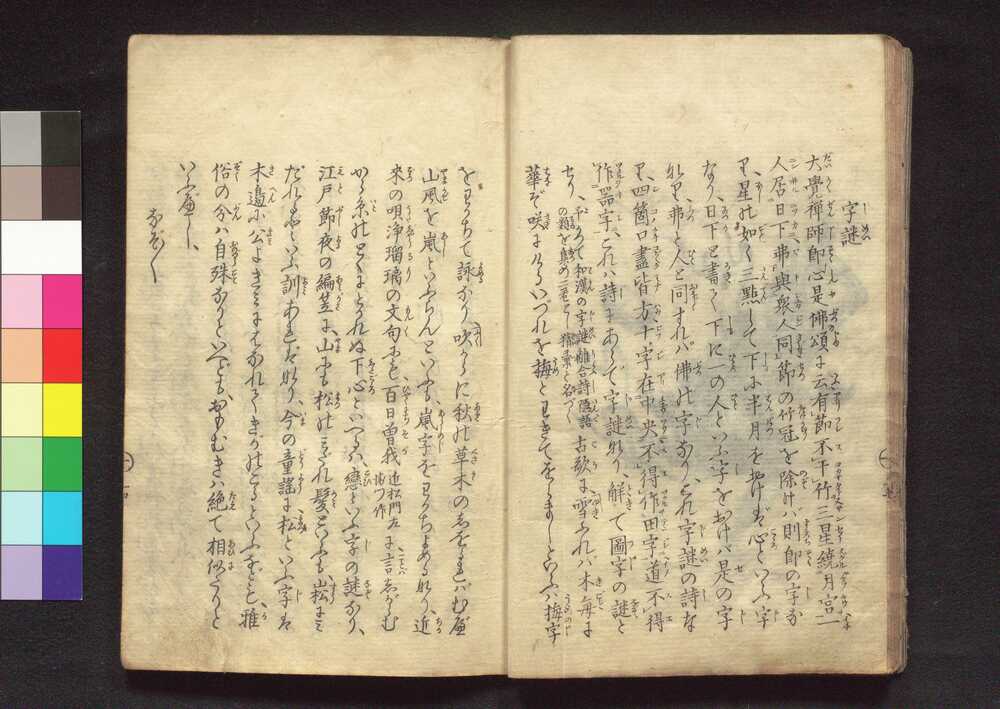 字謎
大覺禅師即心是佛頌に云有節不干竹三星繞月宮一
人居日下弗與衆人同節の竹冠を除けバ則即の字な
り星の如く三點して下に半月をおけば心といふ字
なり日下と書て下に一の人といふ字をおけバ是の字
なり弗と人と同すれバ佛の字なりこれ字謎の詩な
り四箇口盡皆方十字在中央不得作田字道不得
作器字これハ詩にあらで字謎なり解て圖字の謎と
せり 古歌に雪ふれバ木毎に
華ぞ咲にけるいづれを梅とわきてをらましといふハ梅字
をわかちて詠なり吹からに秋の草木のしをるれバむべ
山風を嵐といふらんといふも嵐字をわかちよめるなり近
来の唄浄瑠璃の文句にも百日曽我 近松門左衛門作 に言しがらむ
からいとのとくにとかれぬ下心といへるハ戀といふ字の謎なり
江戸節夜の編笠に山にも松のみだれ髪といふも松に
だれといふ訓あればなり今の童謡に松といふ字は
木邉に公よきみにはなれてきがのこるといふをと雅
俗の分ハ自殊なりといへどもおもむきハ絶て相似たりと
いふべし
なぞ〱